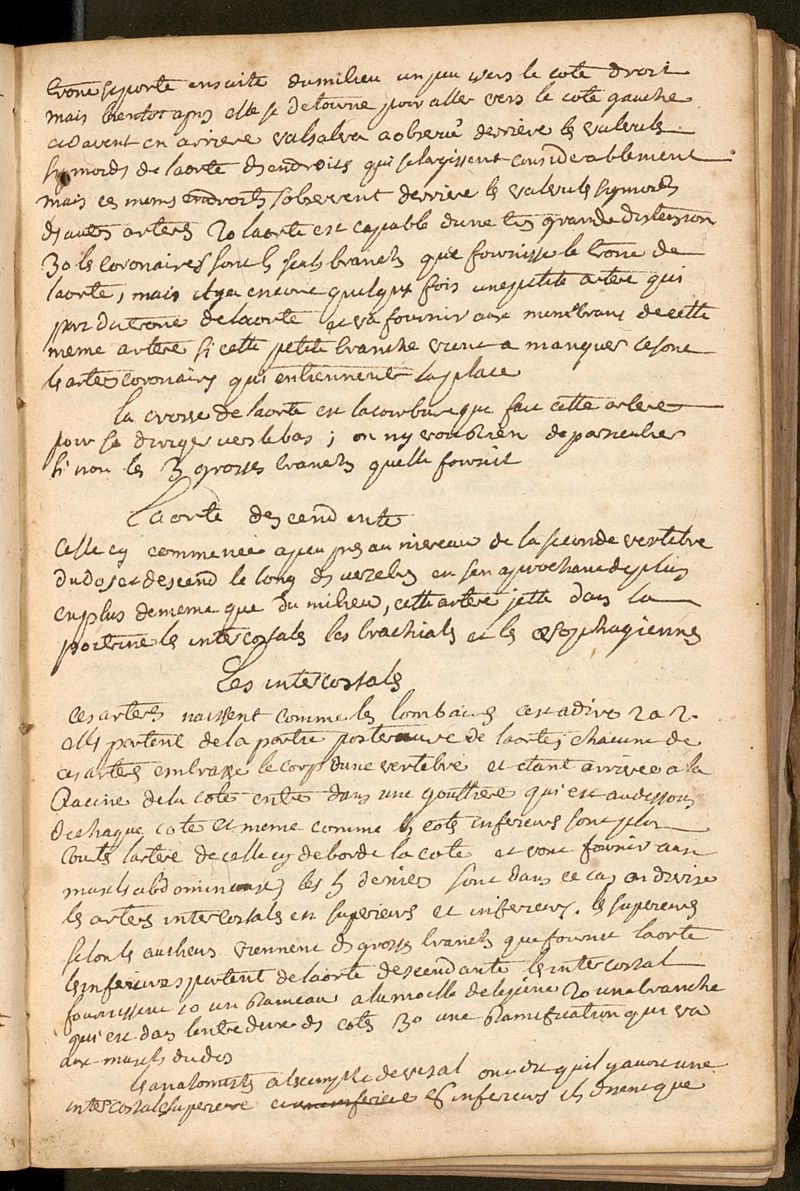 tronc se porte ensuite du milieu un peu vers le coté droit
mais bientot apres elle se detourne pour aller vers le coté gauche
et davent en arriere valsalva a observé derriere les valvules
symoides de laorte des endroits qui selargissent considerablement
mais ces mems endroits sobservent derriere les valvules symoides
des autes arteres 2o laorte est capable dune tres grande distension
3o les coronaires sont les seuls branches que fournisse le tronc de
laorte, mais il y a encore quelque fois une petite artere qui
part du tronc de laorte et va fournir aux membranes de cette
meme artere si cette petite branche vient a manquer ce sont
les arteres coronaires qui en tiennent la place
la crosse de laorte est la courbure que fait cette artere
pour se diriger vers le bas ; on ny voit rien de particulier
si non les 3 grosses branches quelle fournit
Laorte descendente
celle cy commence a peu pres au niveau de la seconde vertebre
du dos et descend le long des en sen aprochant de plus
en plus de meme que du milieu, cette artere jette dans la
poitrine les intercostals les brachials et les œsophagiennes
Les intercostals
ces arteres naissent comme les lombaires cest a dire 2 a 2
elles partent de la partie posterieure de laorte, chacune de
ces arteres embrasse le corps dune vertebre et etant arrivée a la
racine de la cote entre dans une gouttiere qui est au dessous
de chaque cote et meme comme les cotes inferieurs sont plus
courtes lartere de celle cy deborde la cote et vont fournir aux
muscles abdominaux, les 5 dernieres sont dans ce cas on divise
les arteres intercostals en superieurs et inferieurs. les superieurs
selon les autheurs viennent des grosses branches que fournit laorte
les inferieures partent de laorte descendante les intercostal
fournissent 1o un rameau a la moelle de lepine 2o une branche
qui est dans lentre deux des cotes 3o une ramification qui va
aux muscles du dos
les anatomistes a lexemple de vesal ont dit quil y avoit une
intercostale superieure et une inferieure inferieurs ils disent que